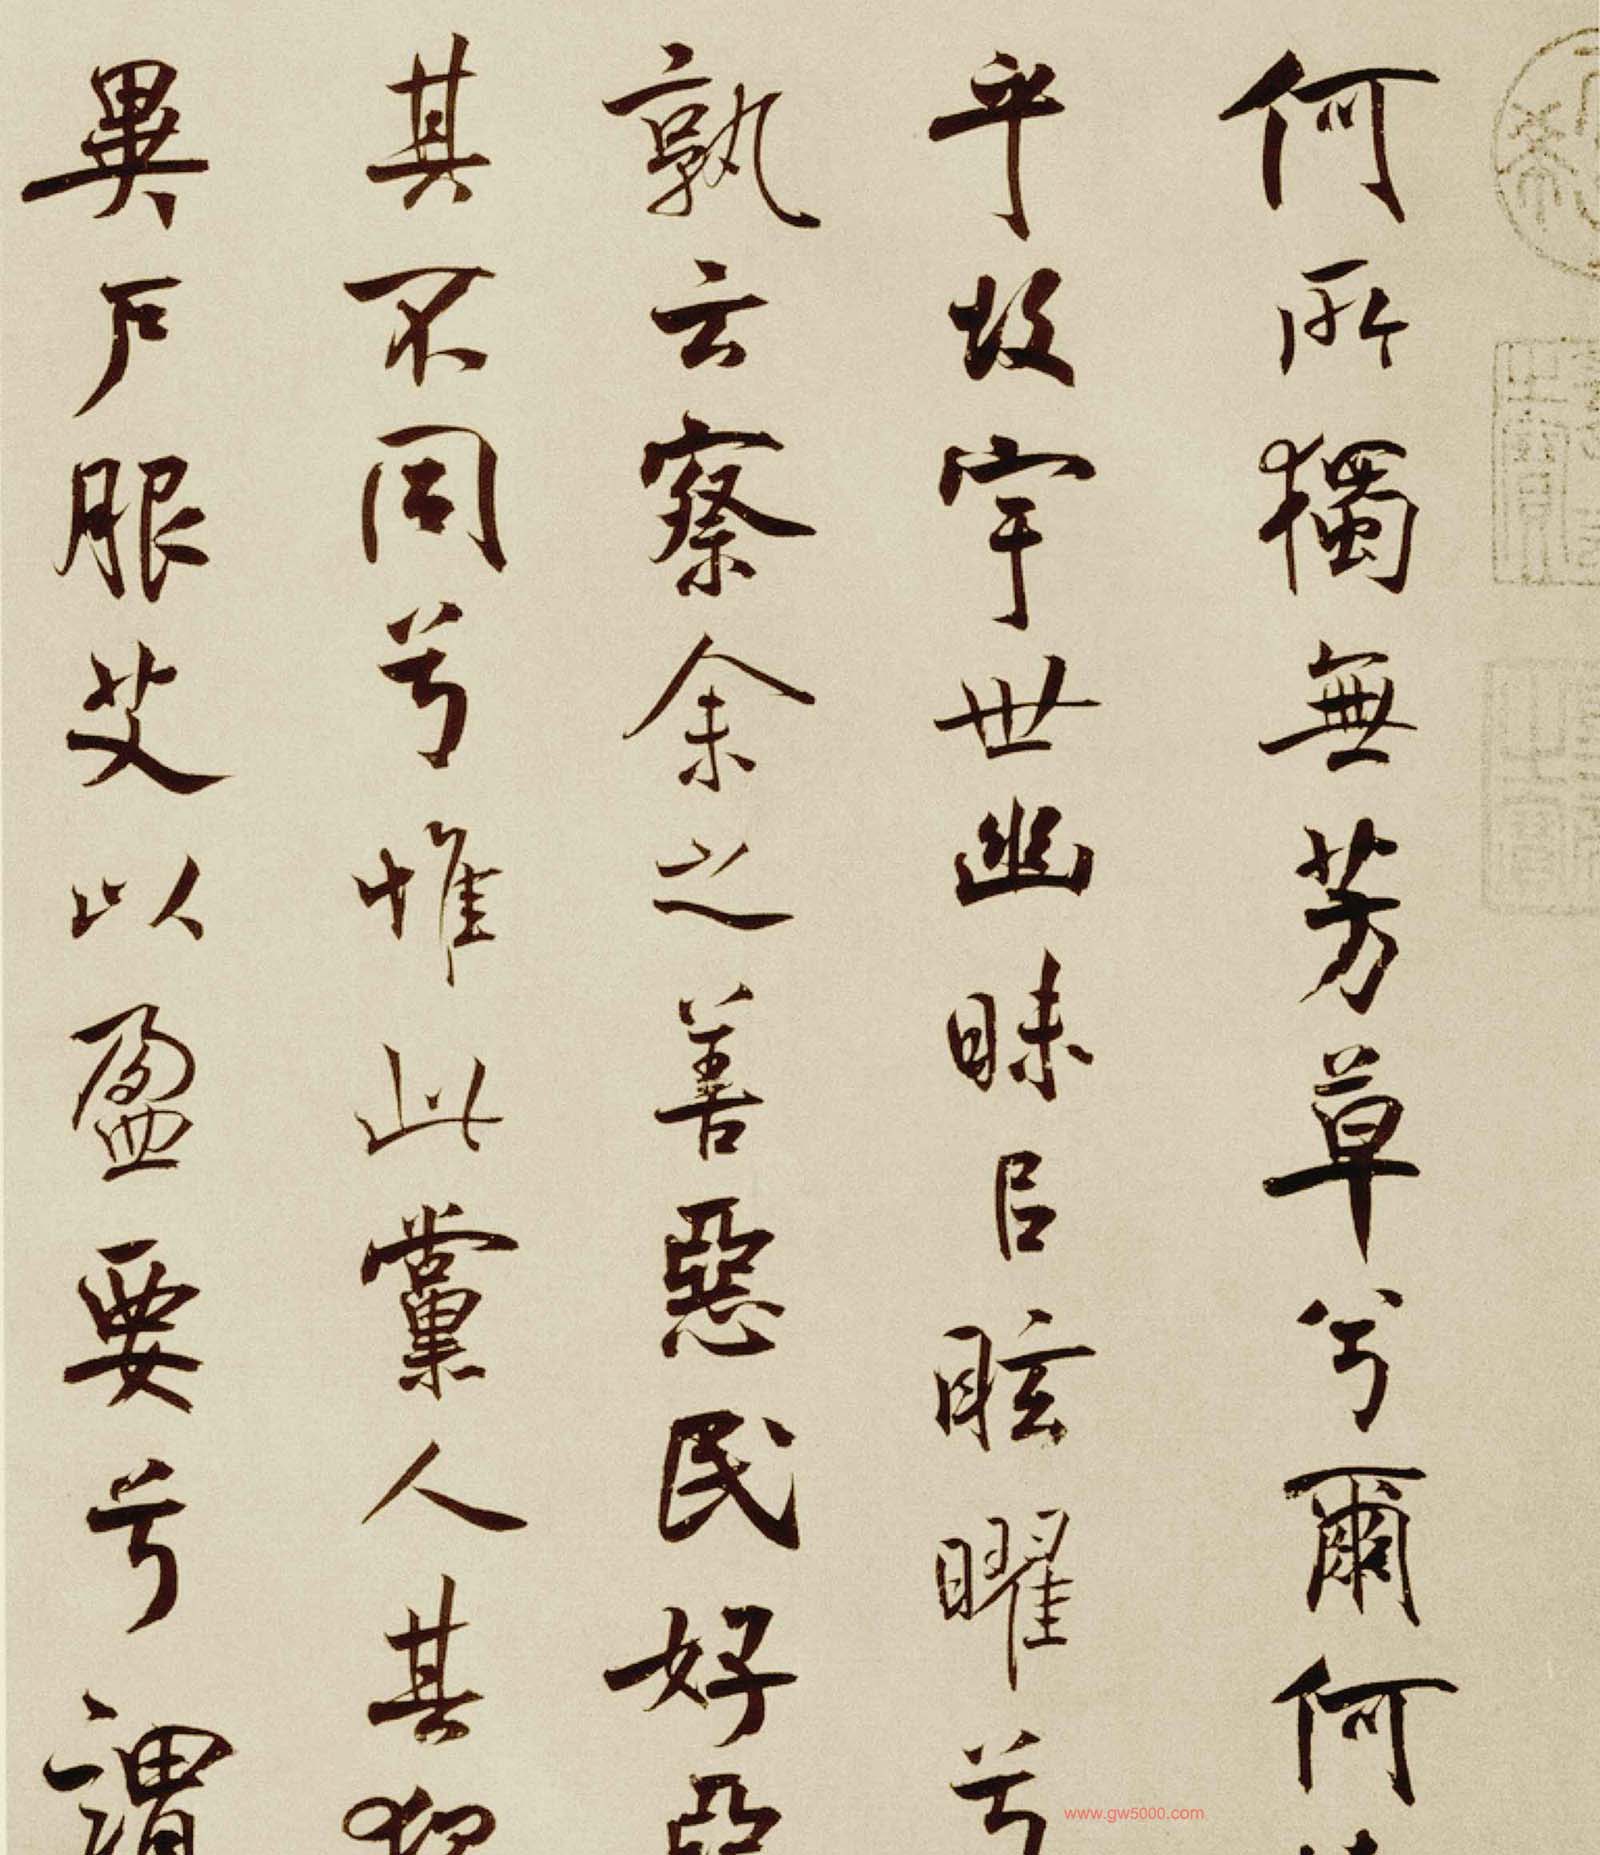 何所獨無芳草兮爾何
乎故宇世幽昧㠯眩曜兮
孰云察余之善惡民好惡
其不同兮惟此黨人其獨
異戶服艾以盈要兮謂
www.gw5000.com